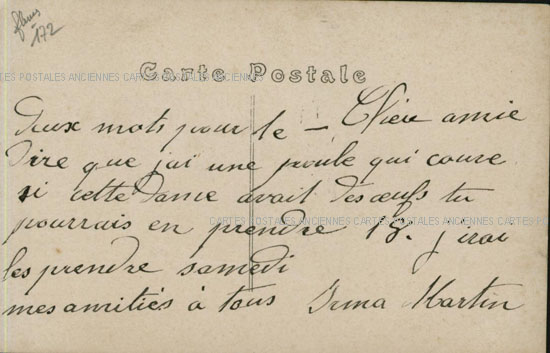 fleurs
172
Carte Postale
CARTES POSTALES ANCIENNES CARTES POSTALES ANCIENNES CARTES
Chère amie
deux mots pour te –
dire que jai une poule qui couve
si cette Dame avait des œufs tu
CARTES POSTALES ANCIENNES CARTES POSTALES ANCIENNES CARTES
pourrais en prendre 18. jirai
les prendre samedi
mes amitiés à tous Irma Martin